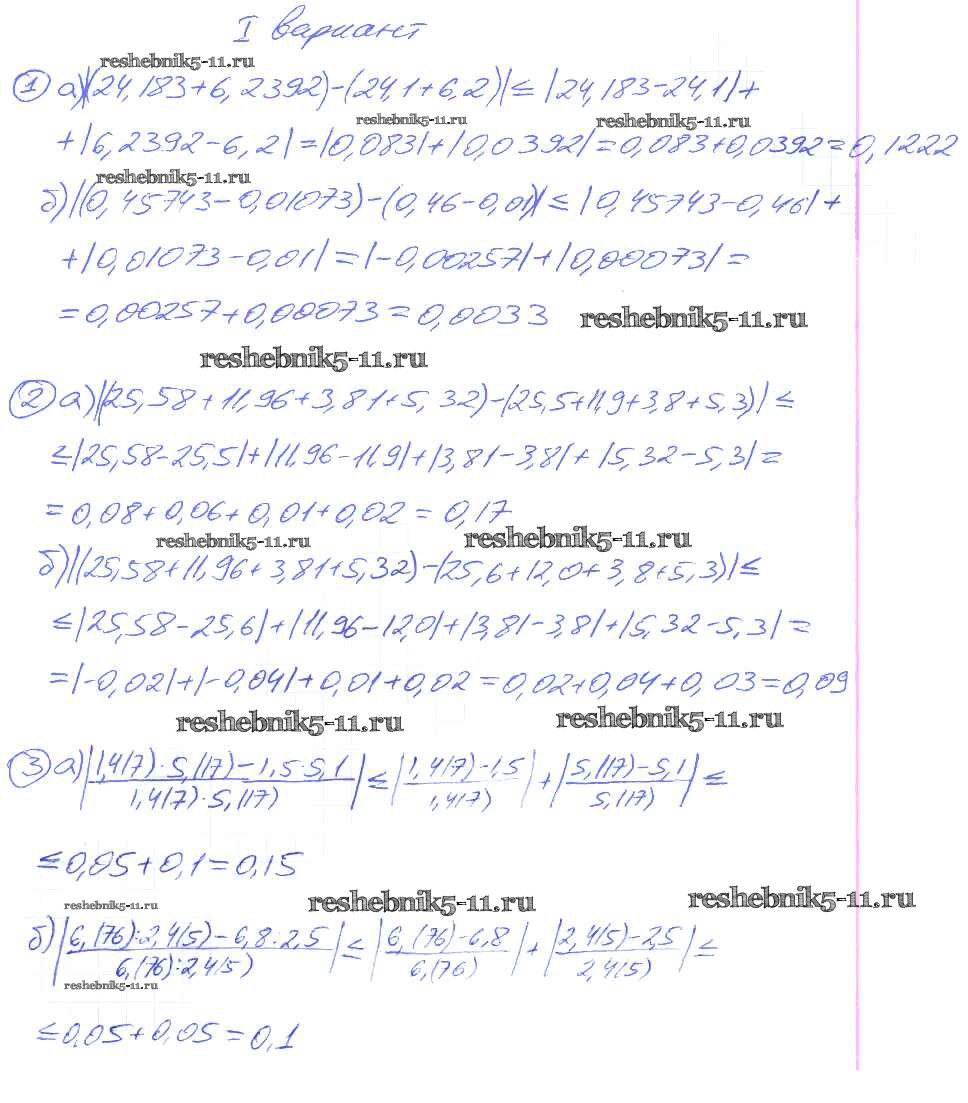 I вариант
reshebnik5-11.ru
① а) |(24,183+6,2392)-(24,1+6,2)| ≤ |24,183-24,1|+
reshebnik5-11.ru reshebnik5-11.ru
+|6,2392-6,2|=|0,083|+|0,0392|=0,083+0,0392=0,1222
reshebnik5-11.ru
б) |(0,45743-0,01073)-(0,46-0,01)| ≤ |0,45743-0,46|+
+|0,01073-0,01|=|-0,00257|+|0,00073|=
=0,00257+0,00073=0,0033 reshebnik5-11.ru
reshebnik5-11.ru
② а) |(25,58+11,96+3,81+5,32)-(25,5+11,9+3,8+5,3)| ≤
≤|25,58-25,5|+|11,96-11,9|+|3,81-3,8|+|5,32-5,3|=
=0,08+0,06+0,01+0,02=0,17
reshebnik5-11.ru reshebnik5-11.ru
б) |(25,58+11,96+3,81+5,32)-(25,6+12,0+3,8+5,3)| ≤
≤|25,58-25,6|+|11,96-12,0|+|3,81-3,8|+|5,32-5,3|=
=|-0,02|+|-0,04|+0,01+0,02=0,02+0,04+0,03=0,09
reshebnik5-11.ru reshebnik5-11.ru
③ а) |1,4(7)·5,(17)-1,5·5,1 / 1,4(7)·5,(17)| ≤ |1,4(7)-1,5 / 1,4(7)| + |5,(17)-5,1 / 5,(17)| ≤
≤0,05+0,1=0,15
reshebnik5-11.ru reshebnik5-11.ru reshebnik5-11.ru
б) |6,(76):2,4(5)-6,8·2,5 / 6,(76):2,4(5)| ≤ |6,(76)-6,8 / 6,(76)| + |2,4(5)-2,5 / 2,4(5)| ≤
reshebnik5-11.ru
≤0,05+0,05=0,1